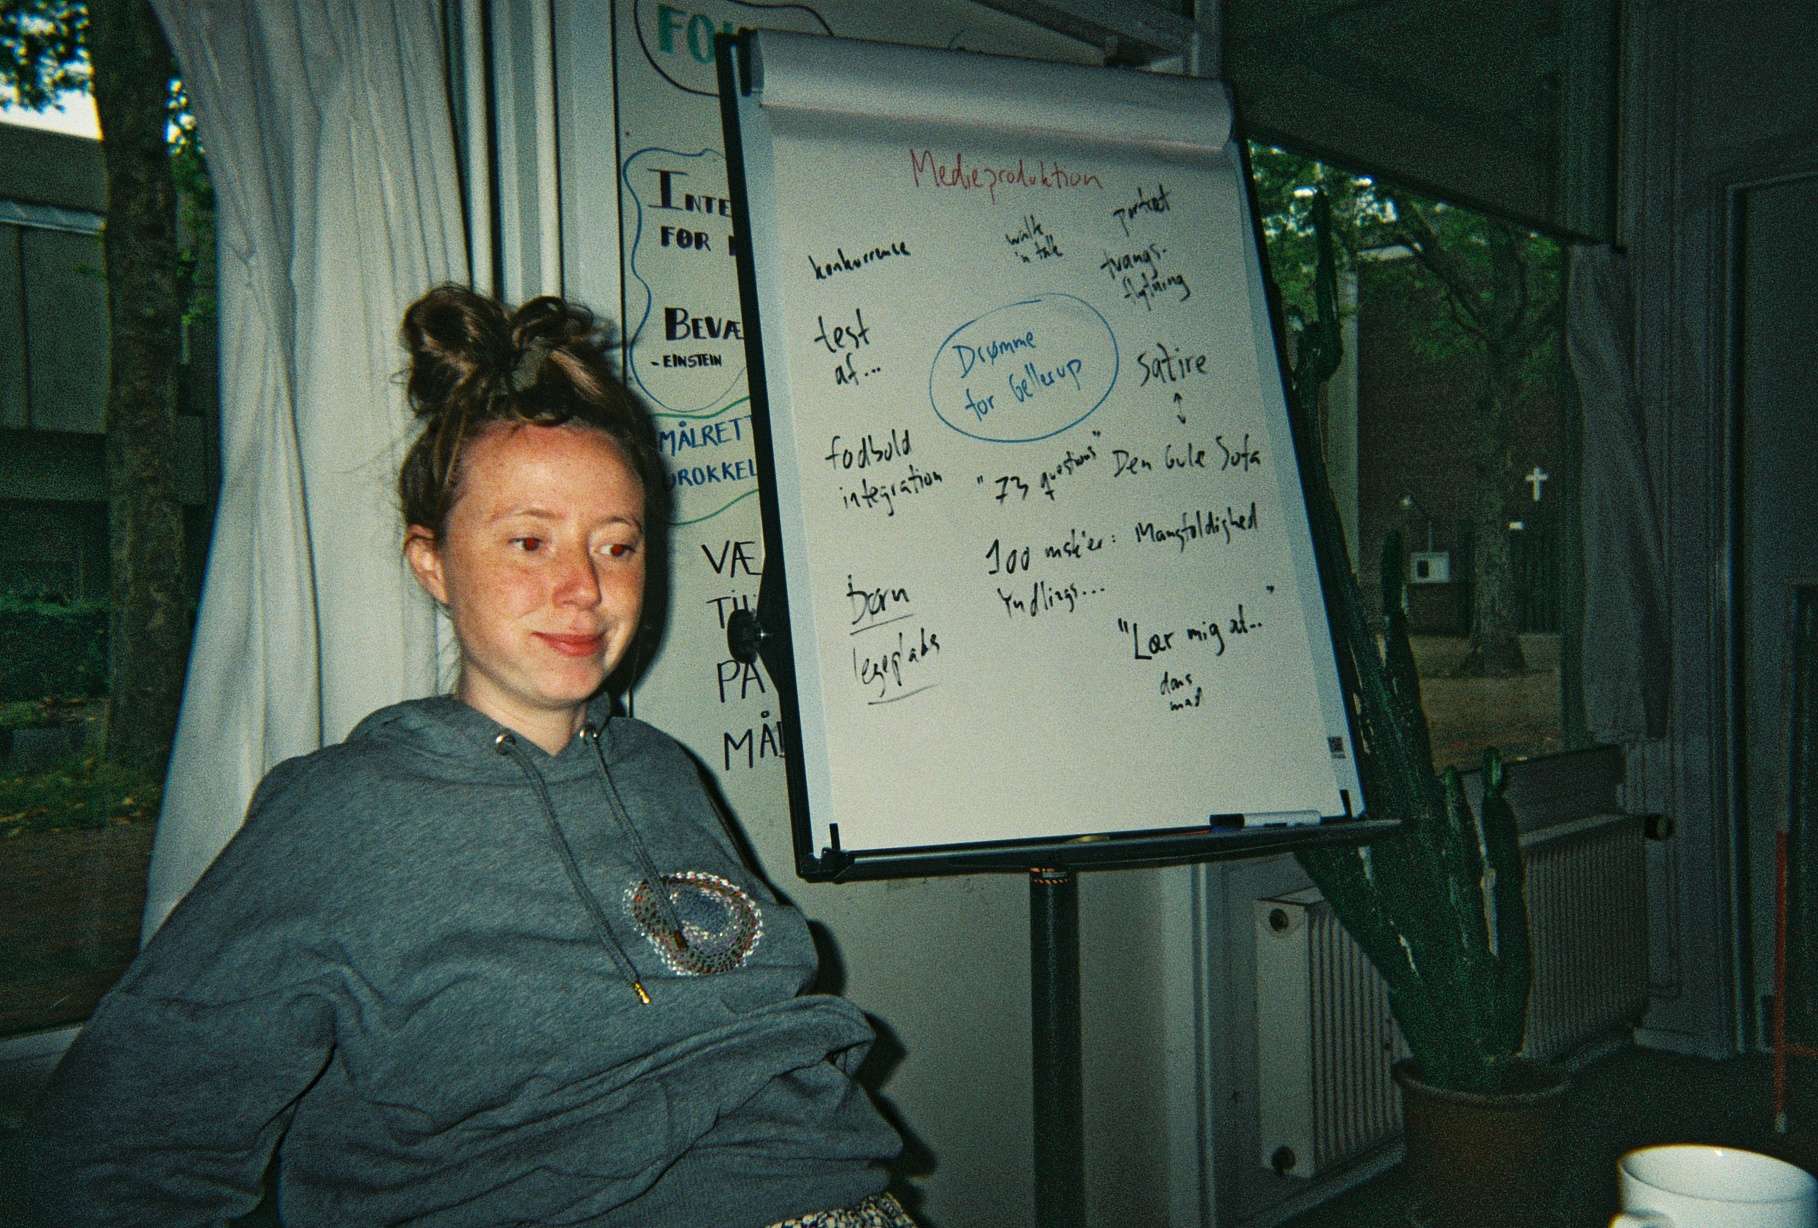 FO
INTE
FØR
BEVÆ
- EINSTEIN
MÅLRET
VÆ
TIL
PÅ
MÅL
Medieproduktion
konkurrence
walk
'n talk
portræt
tvangs-
flytning
test
af...
Drømme
for Gellerup
satire
fodbold
integration
"73 questions"
Den Gule Sofa
100 msk'er: Mangfoldighed
Yndlings...
børn
legeplads
"Lær mig at..."
dans
mad